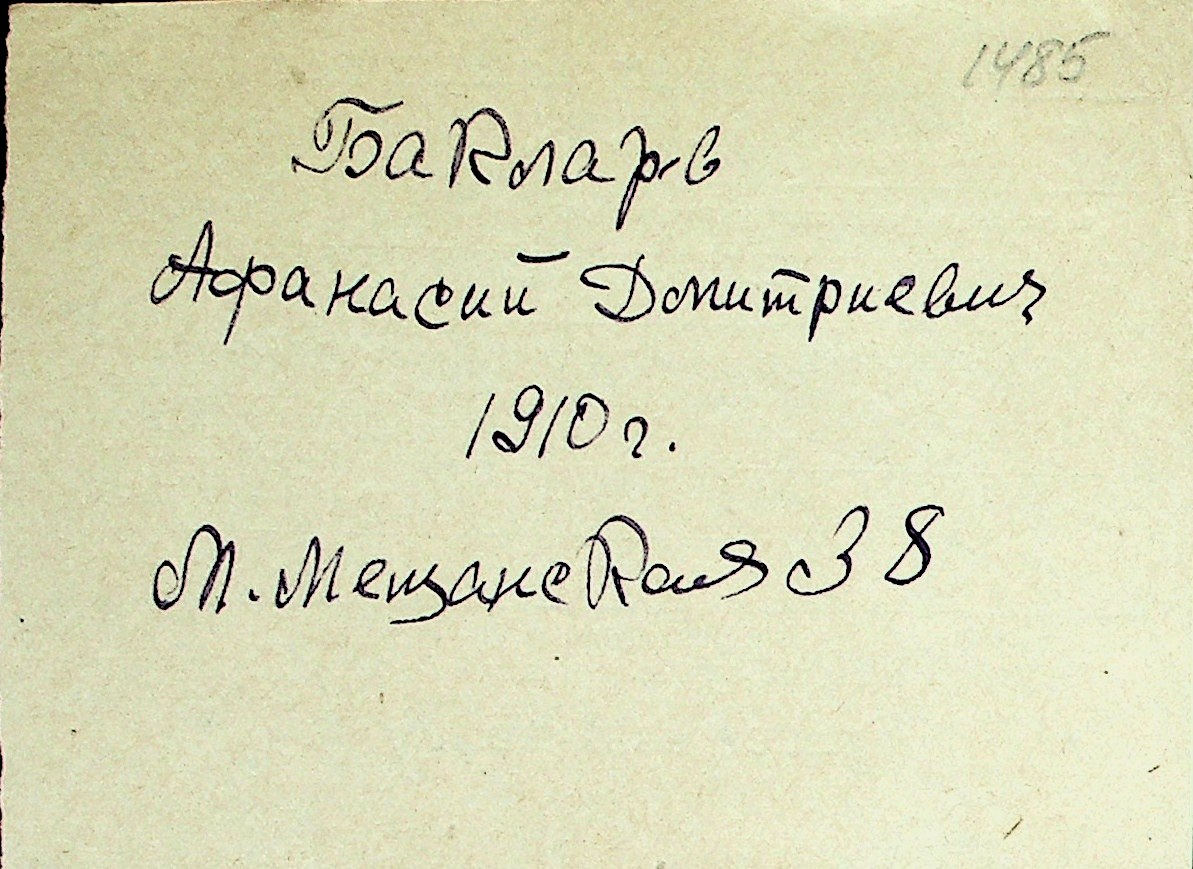 1485
Бакларв
Афанасий Дмитриевич
1910 г.
М. Мещанская 38